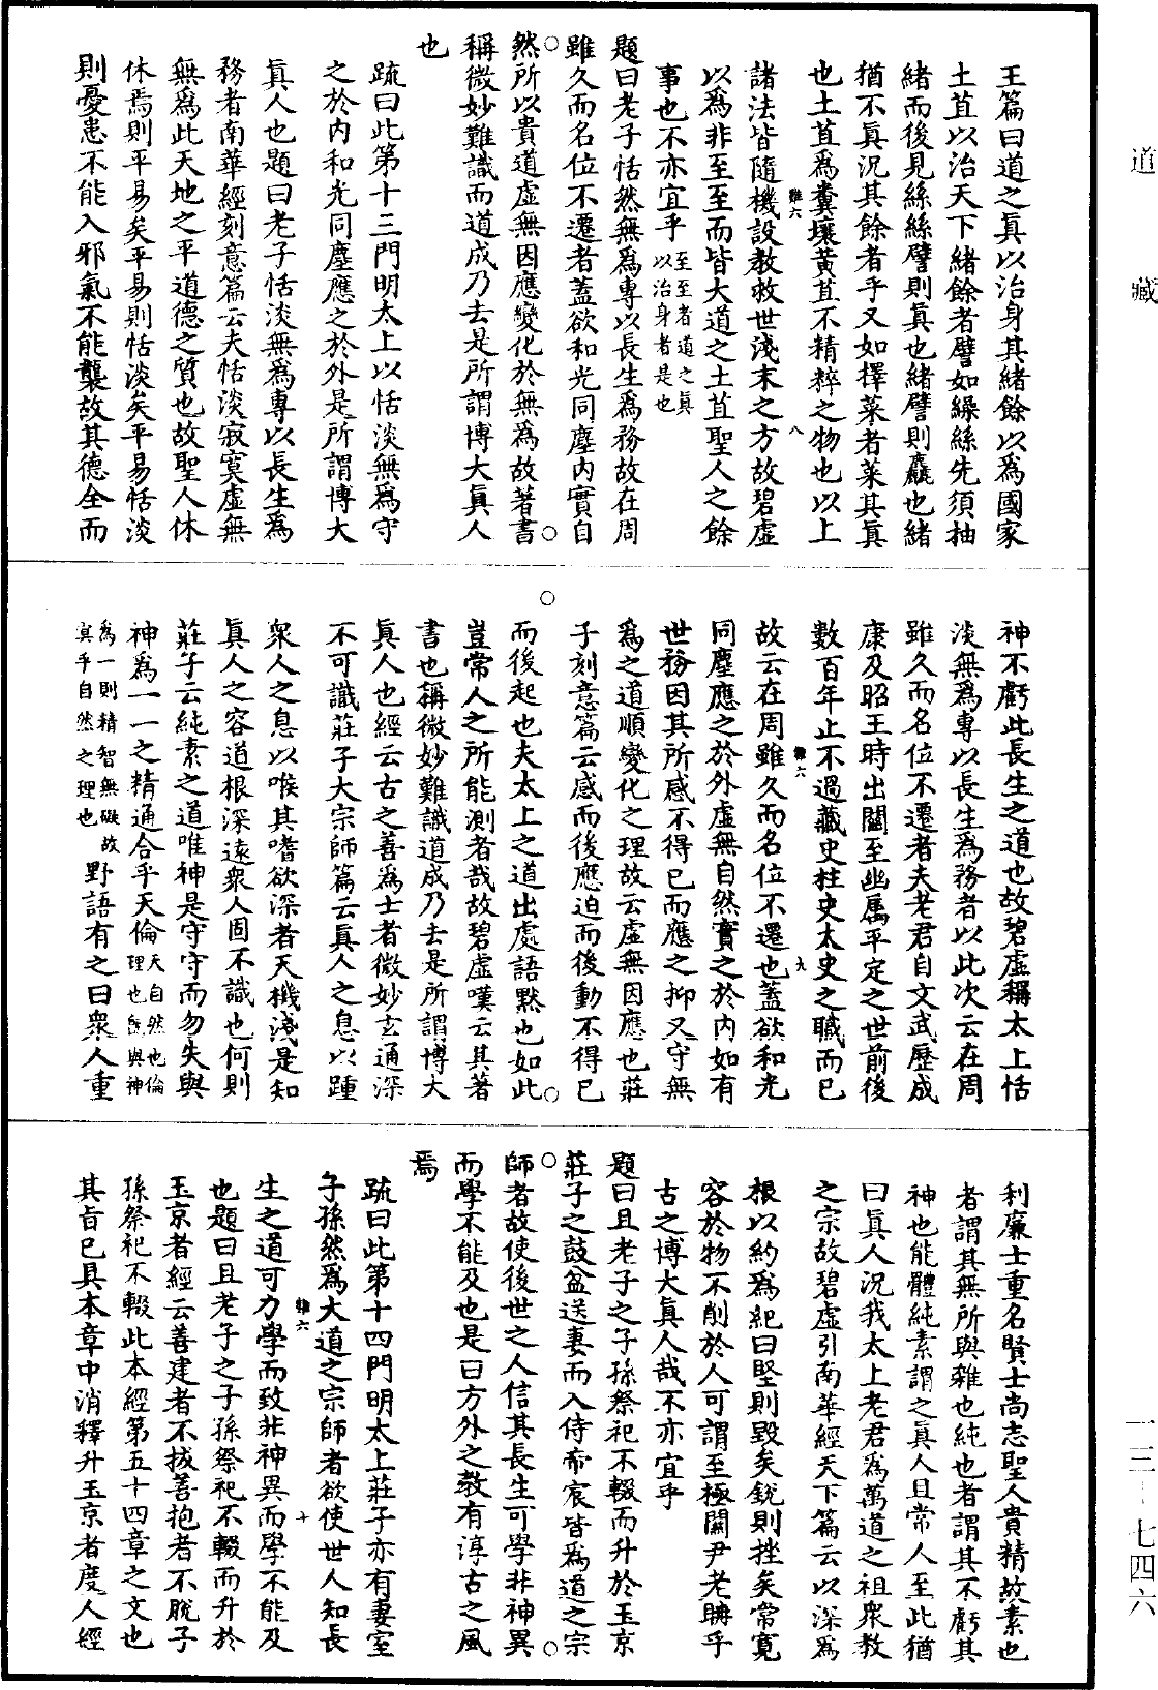 道藏
王篇曰道之眞以治身其緒餘以爲國家
土苴以治天下緒餘者譬如繰絲先須抽
緒而後見絲絲譬則眞也緒譬則麤也緒
猶不眞況其餘者乎又如擇菜者菜其眞
也土苴爲糞壤黃苴不精粹之物也以上
難六 八
諸法皆隨機設教救世淺末之方故碧虛
以爲非至至而皆大道之土苴聖人之餘
事也不亦宜乎至至者道之眞以治身者是也
題曰老子恬然無爲專以長生爲務故在周
雖久而名位不遷者蓋欲和光同塵內實自
然所以貴道虛無因應變化於無爲故著書
稱微妙難識而道成乃去是所謂博大眞人
也
疏曰此第十三門明太上以恬淡無爲守
之於內和光同塵應之於外是所謂博大
眞人也題曰老子恬淡無爲專以長生爲
務者南華經刻意篇云夫恬淡寂寞虛無
無爲此天地之平道德之質也故聖人休
休焉則平易矣平易則恬淡矣平易恬淡
則憂患不能入邪氣不能襲故其德全而
神不虧此長生之道也故碧虛稱太上恬
淡無爲專以長生爲務者以此次云在周
雖久而名位不遷者夫老君自文武歷成
康及昭王時出關至幽厲平定之世前後
數百年止不過藏史柱史太史之職而已
難六 九
故云在周雖久而名位不遷也蓋欲和光
同塵應之於外虛無自然實之於內如有
世務因其所感不得已而應之抑又守無
爲之道順變化之理故云虛無因應也莊
子刻意篇云感而後應迫而後動不得已
而後起也夫太上之道出處語默也如此
豈常人之所能測者哉故碧虛嘆云其著
書也稱微妙難識道成乃去是所謂博大
眞人也經云古之善爲士者微妙玄通深
不可識莊子大宗師篇云眞人之息以踵
衆人之息以喉其嗜欲深者天機淺是知
眞人之容道根深遠衆人固不識也何則
莊子云純素之道唯神是守守而勿失與
神爲一一之精通合乎天倫天自然也倫理也旣與神
爲一則精智無礙故冥乎自然之理也野語有之曰衆人重
利廉士重名賢士尚志聖人貴精故素也
者謂其無所與雜也純也者謂其不虧其
神也能體純素謂之眞人且常人至此猶
曰眞人況我太上老君爲萬道之祖衆教
之宗故碧虛引南華經天下篇云以深爲
根以約爲紀曰堅則毀矣銳則挫矣常寬
容於物不削於人可謂至極關尹老聃乎
古之博大眞人哉不亦宜乎
題曰且老子之子孫祭祀不輟而升於玉京
莊子之鼓盆送妻而入侍帝宸皆爲道之宗
師者故使後世之人信其長生可學非神異
而學不能及也是曰方外之教有淳古之風
焉
疏曰此第十四門明太上莊子亦有妻室
子孫然爲大道之宗師者欲使世人知長
難六 十
生之道可力學而致非神異而學不能及
也題曰且老子之子孫祭祀不輟而升於
玉京者經云善建者不拔善抱者不脫子
孫祭祀不輟此本經第五十四章之文也
其旨已具本章中消釋升玉京者度人經
一三-七四六